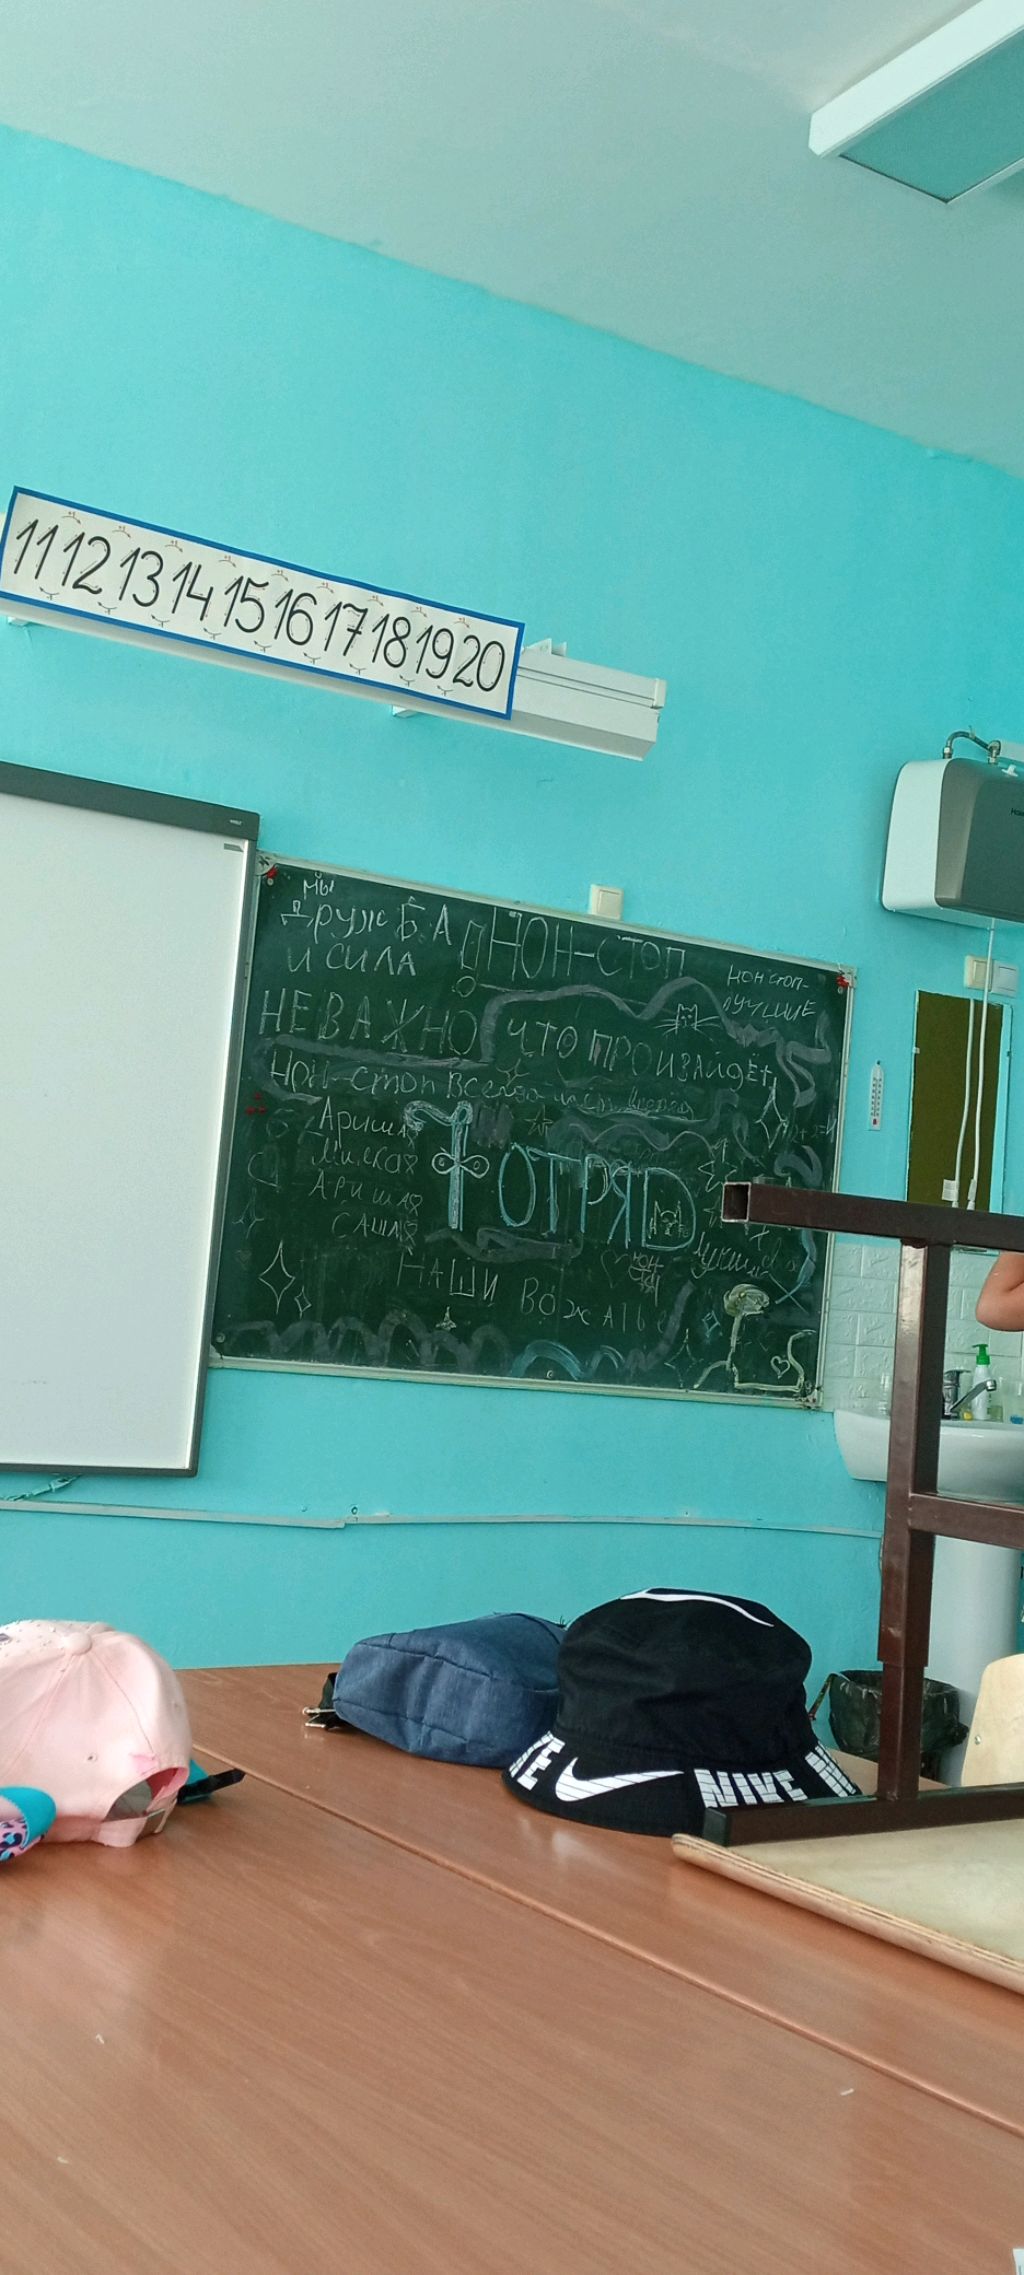 11 12 13 14 15 16 17 18 19 20
мы
дружБА
и СИЛА
НОН-СТОП
НОН СТОП-
ЛУЧШИЕ
НЕВАЖНО ЧТО ПРОИЗАЙДЁТ,
НОН-СТОП всегда
Ариша
Ариша
САША
1 ОТРЯД
НАШИ ВОЖАТЫЕ
NIKE